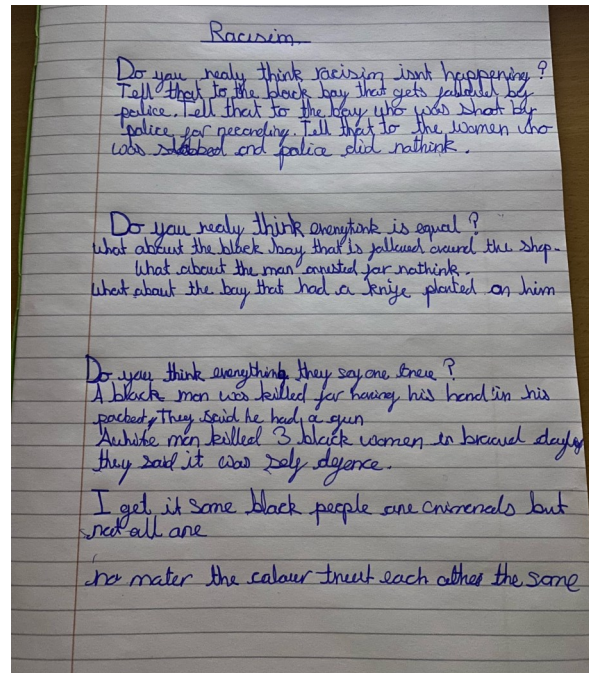 Racisim
Do you realy think racisim isnt happening?
Tell that to the black boy that gets followed by
police. Tell that to the boy who was shot by
police for recording. Tell that to the women who
was stabbed and police did nothink.
Do you realy think everythink is equal?
What about the black boy that is followed around the shop.
What about the man arrested for nothink.
What about the boy that had a knife planted on him
Do you think everything they say are true?
A black man was killed for having his hand in his
pocket, They said he had a gun
A white man killed 3 black women in
they said it was self defence.
I get it some black people are crimenals but
not all are
no mater the colour treat each other the same